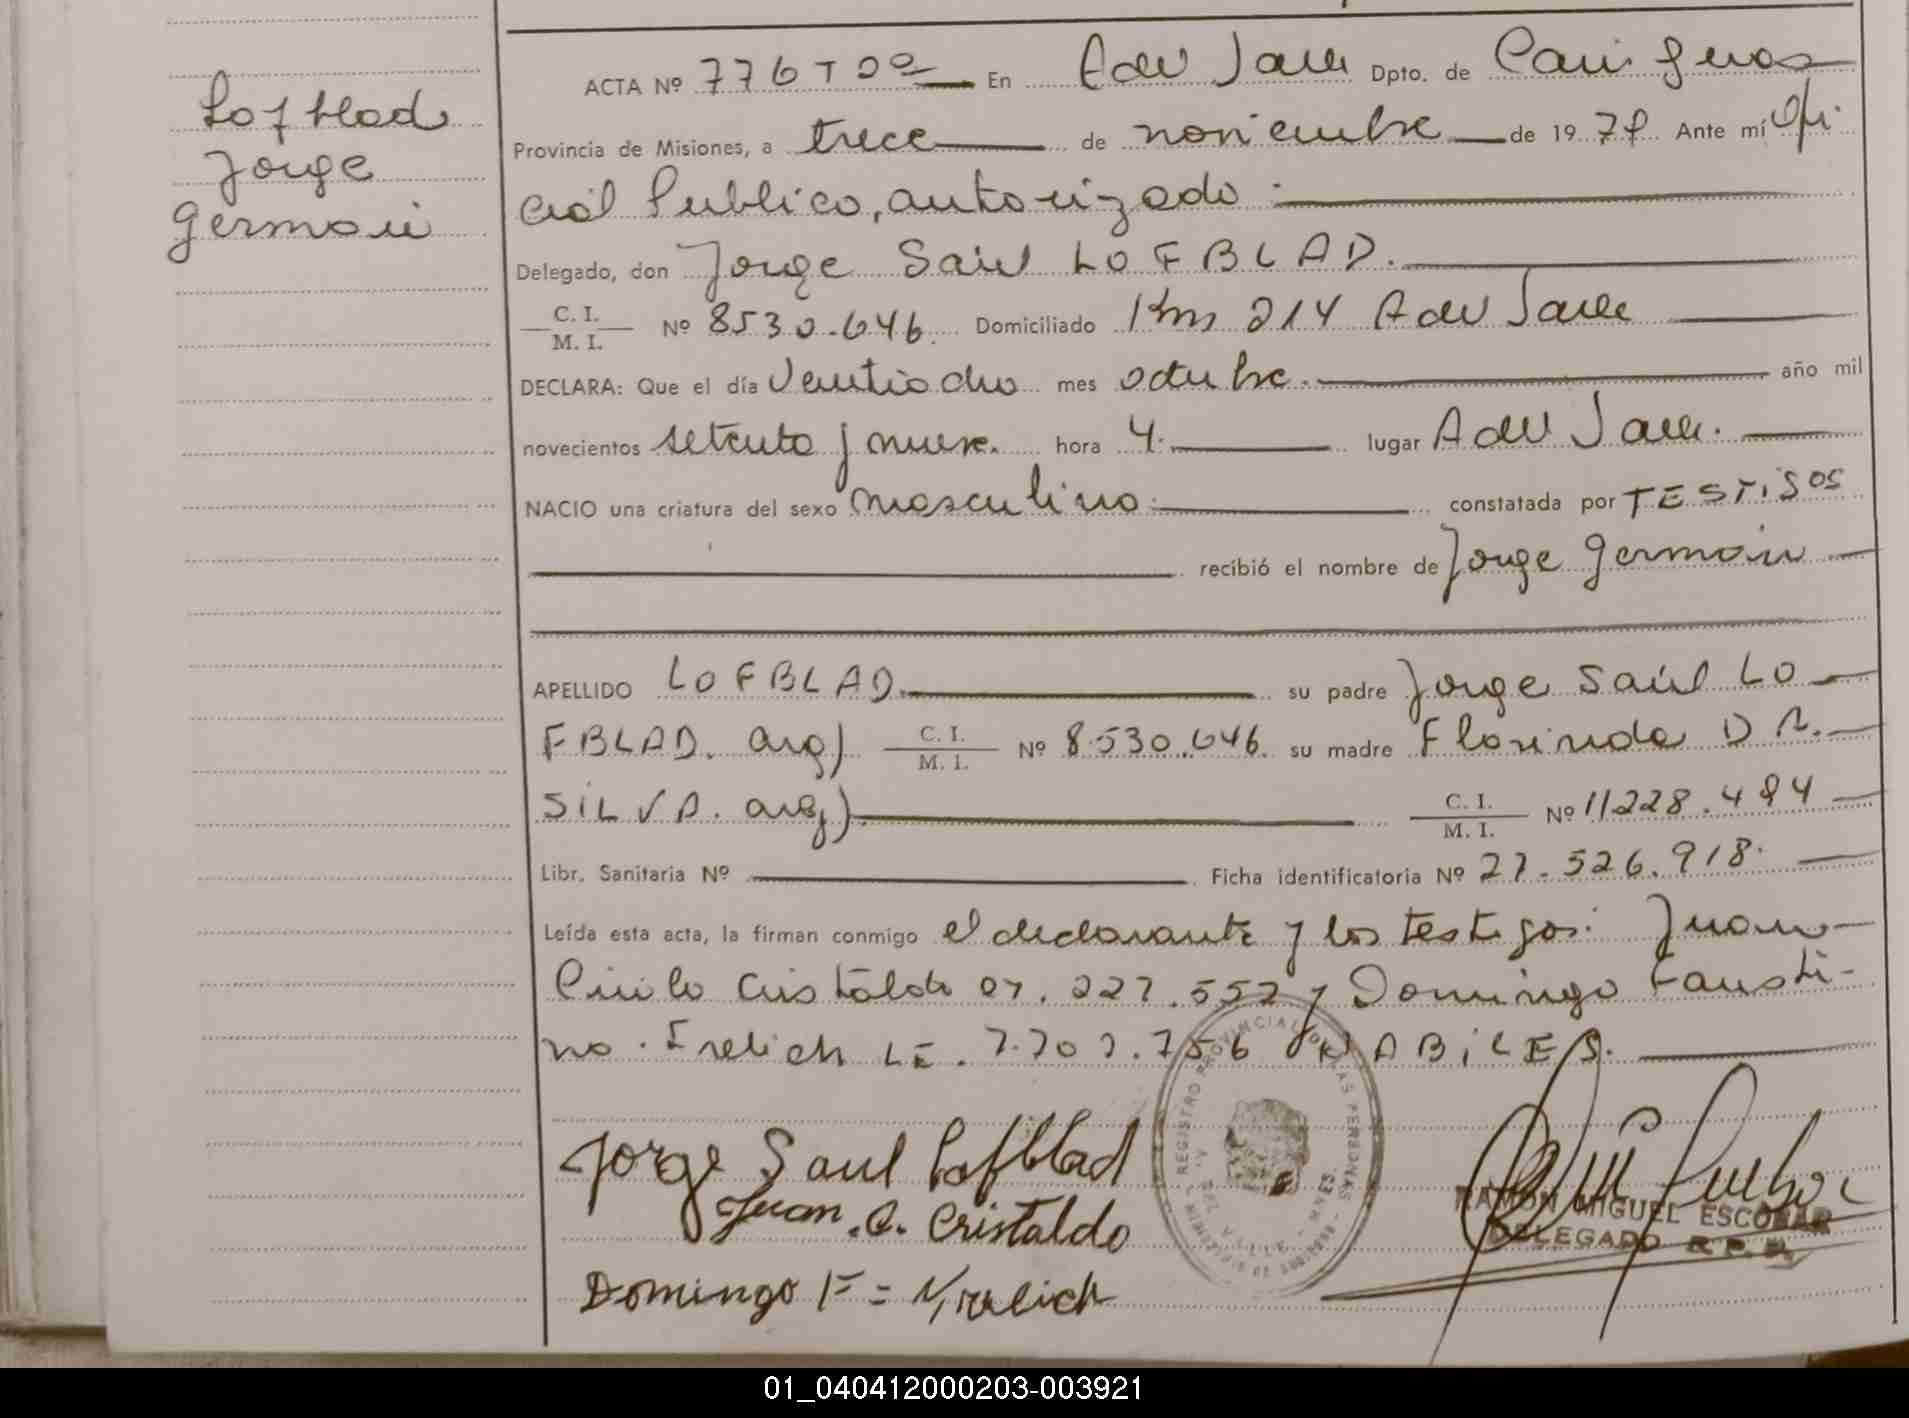 Lofblad
Jorge
Germán
ACTA Nº 776 Tº 2º En Adel Valle Dpto. de Cainguas
Provincia de Misiones, a trece de noviembre de 1979 Ante mí Ofi
cial Publico, autorizado
Delegado, don Jorge Saúl LOFBLAD.
C. I.
M. I. Nº 8530.646. Domiciliado Km 214 Adel Valle
DECLARA: Que el día Ventiocho mes octubre. año mil
novecientos setenta y nueve. hora 4. lugar Adel Valle.
NACIO una criatura del sexo masculino constatada por TESTIGOS
recibió el nombre de Jorge Germán
APELLIDO LOFBLAD. su padre Jorge Saúl LO
FBLAD. arg) C. I. M. I. Nº 8.530.646. su madre Florinda D
SILVA. arg) C. I. M. I. Nº 11228.494
Libr. Sanitaria Nº Ficha identificatoria Nº 27.526.918.
Leída esta acta, la firman conmigo el declarante y los testigos: Juan
Cirilo Cristaldo 07.227.557 y Domingo Fausti-
no. Frelich LE. 7.707.756 HABILES.
Jorge Saul Lofblad
Juan. C. Cristaldo
Domingo F = Frelich
REGISTRO PROVINCIAL DE LAS PERSONAS
DEL VALLE - MNES.
RAMON MIGUEL ESCOBAR
DELEGADO R. P. P.
01_040412000203-003921